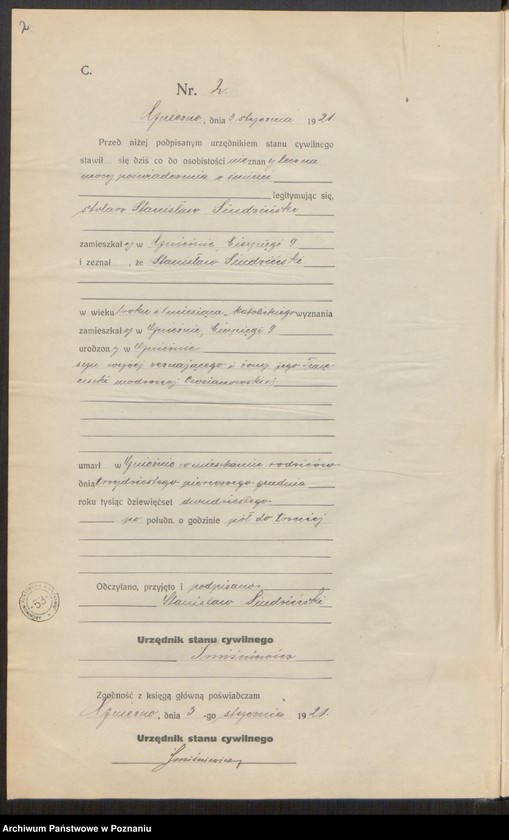 2
C.
Nr. 2.
Gniezno, dnia 3 stycznia 1921
Przed niżej podpisanym urzędnikiem stanu cywilnego
stawił się dziś co do osobistości nieznany lecz na
mocy poświadczenia o śmierci
legitymując się,
stolarz Stanisław
zamieszkały w Gnieźnie, 9
i zeznał, że Stanisław
w wieku 1 roku miesiąca, katolickiego wyznania
zamieszkały w Gnieźnie, 9
urodzony w Gnieźnie
syn wyżej zeznającego i żony jego
umarł w Gnieźnie w mieszkaniu rodziców
dnia trzydziestego pierwszego grudnia
roku tysiąc dziewięćset dwudziestego
po połudn. o godzinie pół do trzeciej
Odczytano, przyjęto i podpisano
Stanisław
Urzędnik stanu cywilnego
Zgodność z księgą główną poświadczam
Gniezno, dnia 3 -go stycznia 1921.
Urzędnik stanu cywilnego
53
Archiwum Państwowe w Poznaniu